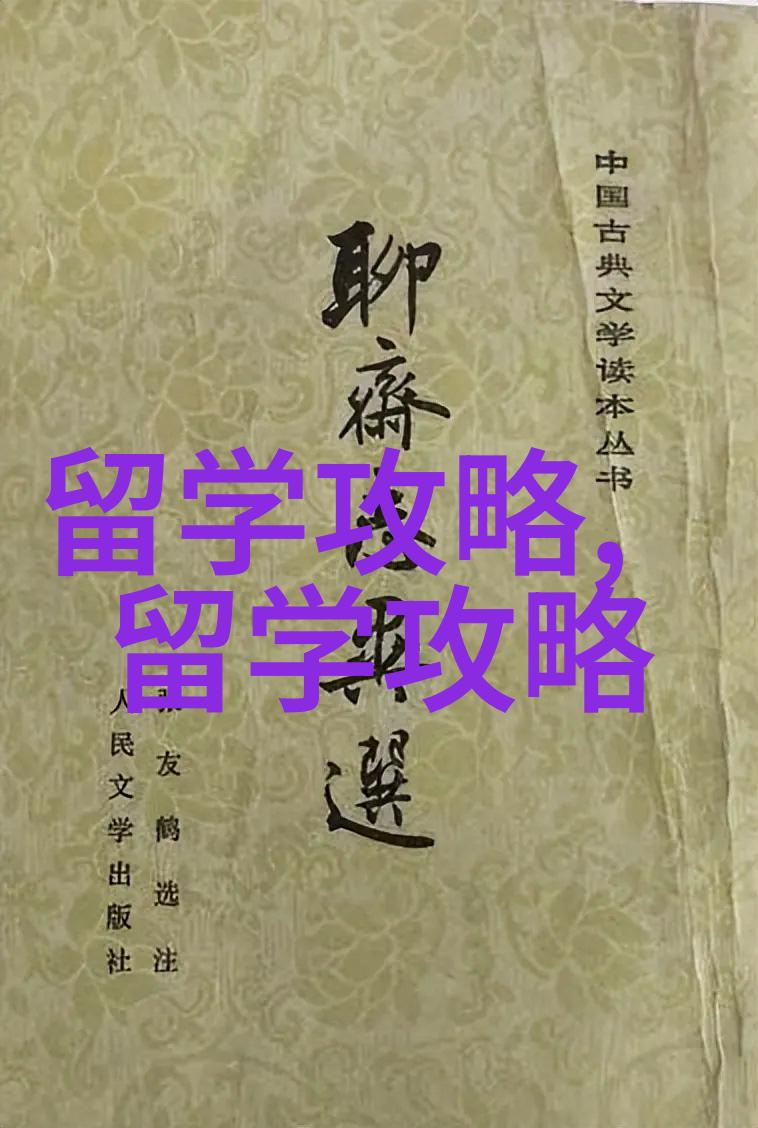 中国古典文学读本丛书
聊齋志異選
张友鹤选注
人民文学出版社
留学攻略,
留学攻略